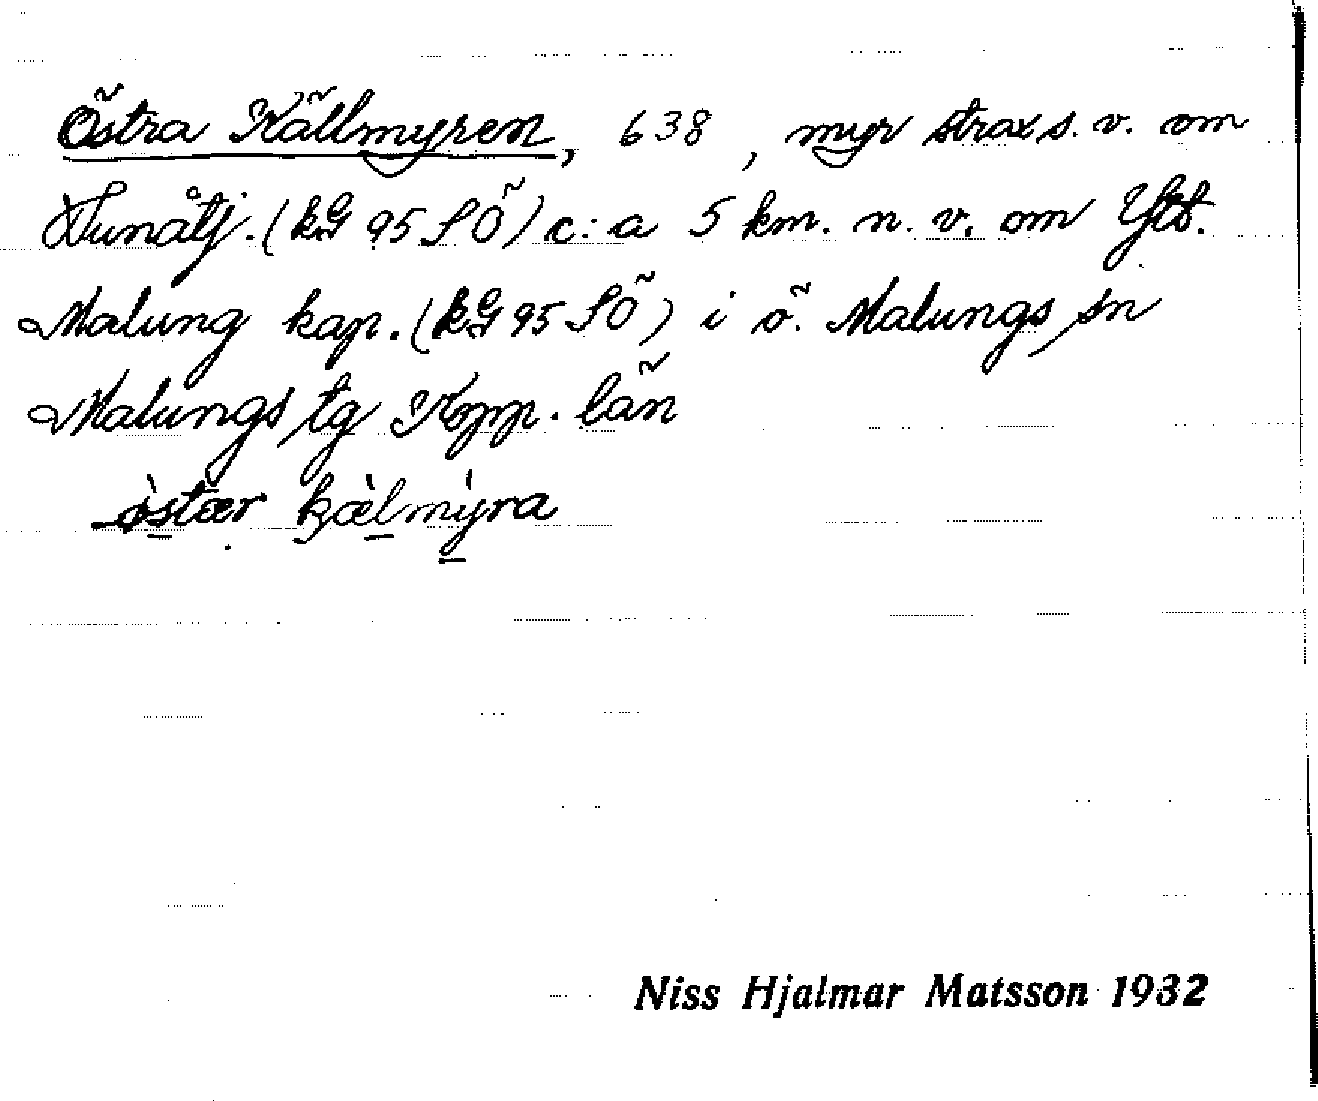 Östra Källmyren, 638, myr strax s. v. om
Tunåtj. (kG 95 SÖ) c:a 5 km. n. v. om Ytt.
Malung kap. (kG 95 SÖ) i ö. Malungs sn
Malungs tg Kopp. län
òstær kjælmýra
Niss Hjalmar Matsson 1932